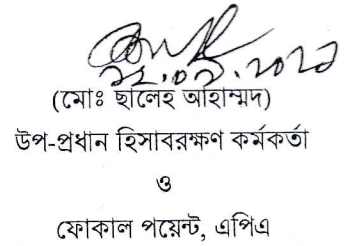 (মোঃ ছালেহ আহাম্মদ)
উপ-প্রধান হিসাবরক্ষণ কর্মকর্তা
ও
ফোকাল পয়েন্ট, এপিএ